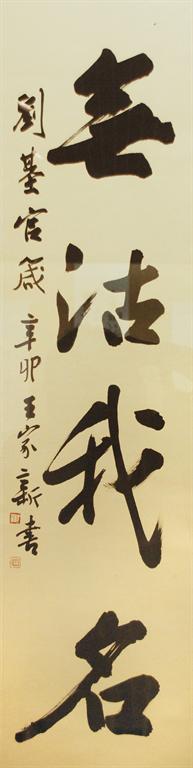 無沽我名
劉基官箴 辛卯 王家新書